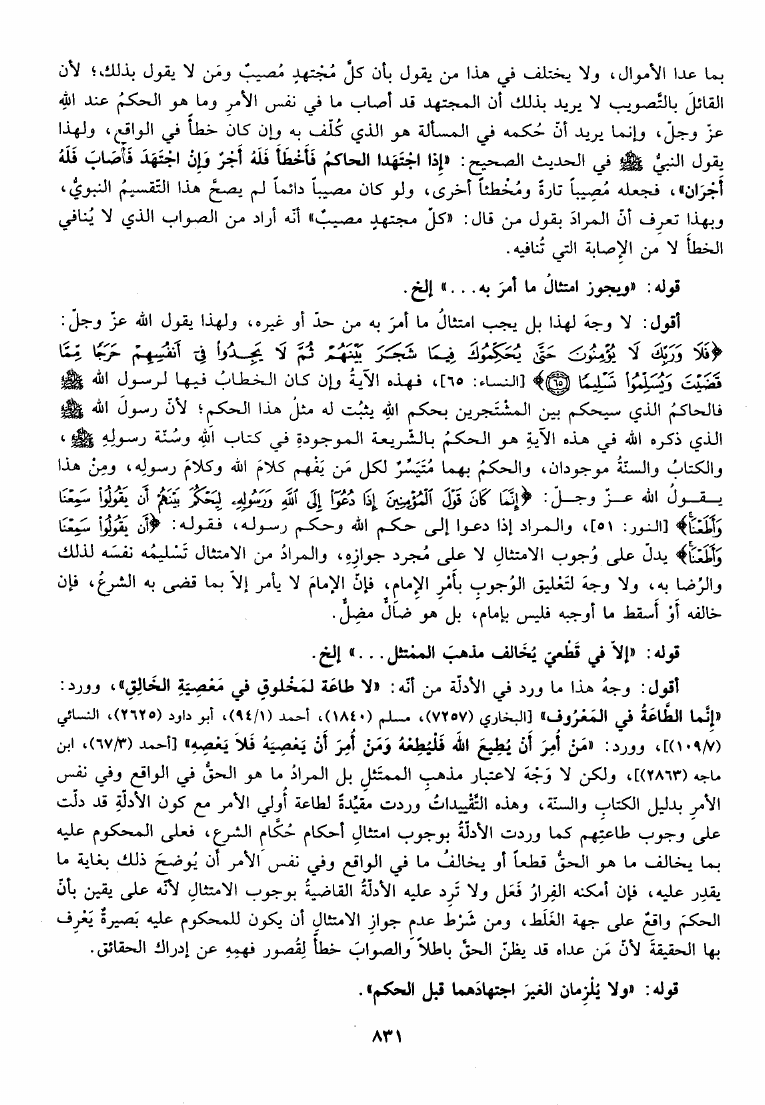 بما عدا الأموال، ولا يختلف في هذا من يقول بأن كلَّ مُجْتهدٍ مُصيبٌ ومَن لا يقول بذلك؛ لأن
القائلَ بالتَّصويب لا يريد بذلك أن المجتهد قد أصاب ما في نفس الأمرِ وما هو الحكمُ عند اللهِ
عزّ وجلّ، وإنما يريد أنّ حُكمه في المسألة هو الذي كُلّف به وإن كان خطأً في الواقع، ولهذا
يقول النبيُّ ﷺ في الحديث الصحيح: «إِذا اجتَهَدا الحاكمُ فَأَخْطَأَ فَلَهُ أَجْرٌ وَإِنْ اجْتَهَدَ فَأَصَابَ فَلَهُ
أَجْرَان»، فجعله مُصِيباً تارةً ومُخْطئاً أخرى، ولو كان مصيباً دائماً لم يصحَّ هذا التّقسيمُ النبويُّ،
وبهذا تعرِف أنّ المرادَ بقول من قال: «كلّ مجتهدٍ مصيبٌ» أنه أراد من الصواب الذي لا يُنافي
الخطأَ لا من الإصابة التي تُنافيه.
قوله: «ويجوز امتثالُ ما أمرَ به...» إلخ.
أقول: لا وجهَ لهذا بل يجب امتثالُ ما أمرَ به من حدّ أو غيره، ولهذا يقول الله عزّ وجلّ:
﴿فَلَا وَرَبِّكَ لَا يُؤْمِنُونَ حَتَّى يُحَكِّمُوكَ فِيمَا شَجَرَ بَيْنَهُمْ ثُمَّ لَا يَجِدُوا فِي أَنفُسِهِمْ حَرَجًا مِّمَّا
قَضَيْتَ وَيُسَلِّمُوا تَسْلِيمًا ۝٦٥﴾ [النساء: ٦٥]، فهذه الآيةُ وإن كان الخطابُ فيها لرسول الله ﷺ
فالحاكمُ الذي سيحكم بين المشْتَجرين بحكم اللهِ يثبُت له مثلُ هذا الحكم؛ لأنّ رسولَ الله ﷺ
الذي ذكره الله في هذه الآيةِ هو الحكمُ بالشّريعة الموجودةِ في كتاب الله وسُنّة رسولِهِ ﷺ،
والكتابُ والسنّةُ موجودان، والحكمُ بهما مُتَيَسِّرٌ لكل مَن يَفْهم كلامَ الله وكلامَ رسولِه، ومِنْ هذا
يقولُ الله عزّ وجلّ: ﴿إِنَّمَا كَانَ قَوْلَ الْمُؤْمِنِينَ إِذَا دُعُوا إِلَى اللَّهِ وَرَسُولِهِ لِيَحْكُمَ بَيْنَهُمْ أَن يَقُولُوا سَمِعْنَا
وَأَطَعْنَا﴾ [النور: ٥١]، والمراد إذا دعوا إلى حكم الله وحكم رسوله، فقوله: ﴿أَن يَقُولُوا سَمِعْنَا
وَأَطَعْنَا﴾ يدلّ على وُجوب الامتثالِ لا على مُجرد جوازِهِ، والمرادُ من الامتثال تَسْليمُه نفسَه لذلك
والرّضا به، ولا وجهَ لتَعْليق الوُجوبِ بأَمْرِ الإمام، فإنّ الإمامَ لا يأمر إلاّ بما قضى به الشرعُ، فإن
خالفه أَوْ أَسقط ما أوجبه فليس بإمام، بل هو ضالٌّ مضِلٌّ.
قوله: «إلاّ في قَطْعيّ يُخالف مذهبَ الممْتثل...» إلخ.
أقول: وجهُ هذا ما ورد في الأدلّة من أنّه: «لا طاعَة لمَخْلوقٍ في مَعْصِيَةِ الخَالِقِ»، وورد:
«إنَّما الطَّاعَةُ في المَعْرُوف» [البخاري (٧٢٥٧)، مسلم (١٨٤٠)، أحمد (٩٤/١)، أبو داود (٢٦٢٥)، النسائي
(١٠٩/٧)]، وورد: «مَنْ أُمِرَ أَنْ يُطِيعَ الله فَلْيُطِعْهُ وَمَنْ أُمِرَ أَنْ يَعْصِيَهُ فَلاَ يَعْصِهِ» [أحمد (٦٧/٣)، ابن
ماجه (٢٨٦٣)]، ولكن لا وَجْهَ لاعتبار مذهبِ الممتَثلِ بل المرادُ ما هو الحقُّ في الواقع وفي نفس
الأمرِ بدليل الكتابِ والسنّة، وهذه التَّقْييداتُ وردت مقيِّدةً لطاعة أُولي الأمر مع كون الأدلّةِ قد دلّت
على وجوب طاعتِهم كما وردت الأدلّةُ بوجوب امتثالِ أحكام حُكَّامِ الشرعِ، فعلى المحكوم عليه
بما يخالف ما هو الحقُّ قطعاً أو يخالفُ ما في الواقع وفي نفس الأمر أن يُوضحَ ذلك بغاية ما
يقدِر عليه، فإن أمكنه الفِرارُ فَعَل ولا تَرِد عليه الأدلّةُ القاضيةُ بوجوب الامتثالِ لأنّه على يقين بأنّ
الحكمَ واقعٌ على جهة الغَلَط، ومن شَرْط عدمِ جوازِ الامتثالِ أن يكون للمحكوم عليه بَصيرةٌ يَعْرِف
بها الحقيقةَ لأنّ مَن عداه قد يظنّ الحقَّ باطلاً والصوابَ خطأً لِقُصور فهمِهِ عن إدراك الحقائق.
قوله: «ولا يُلْزِمان الغيرَ اجتهادَهما قبل الحكم».
٨٣١